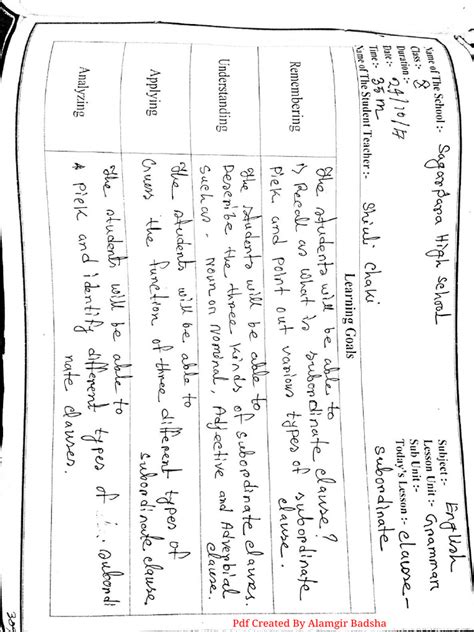 Name of The School:- Sagarpara High School
Class:- 8
Duration:-
Date:- 24/10/17
Time:- 35 m
Name of The Student Teacher:- Shiuli Chaki
Subject:- English
Lesson Unit:- Grammar
Sub Unit:-
Today's Lesson:- Clause-
subordinate
Learning Goals
Remembering
The students will be able to
i) Recall as what is subordinate clause?
Pick and point out various types of subordinate
clause.
Understanding
The students will be able to
Describe the three kinds of subordinate clauses.
Such as - Noun or Nominal, Adjective and Adverbial
clause.
Applying
The students will be able to
Guess the function of three different types of
subordinate clause
Analyzing
The students will be able to
Pick and identify different types of subordi
nate clauses.
Pdf Created By Alamgir Badsha